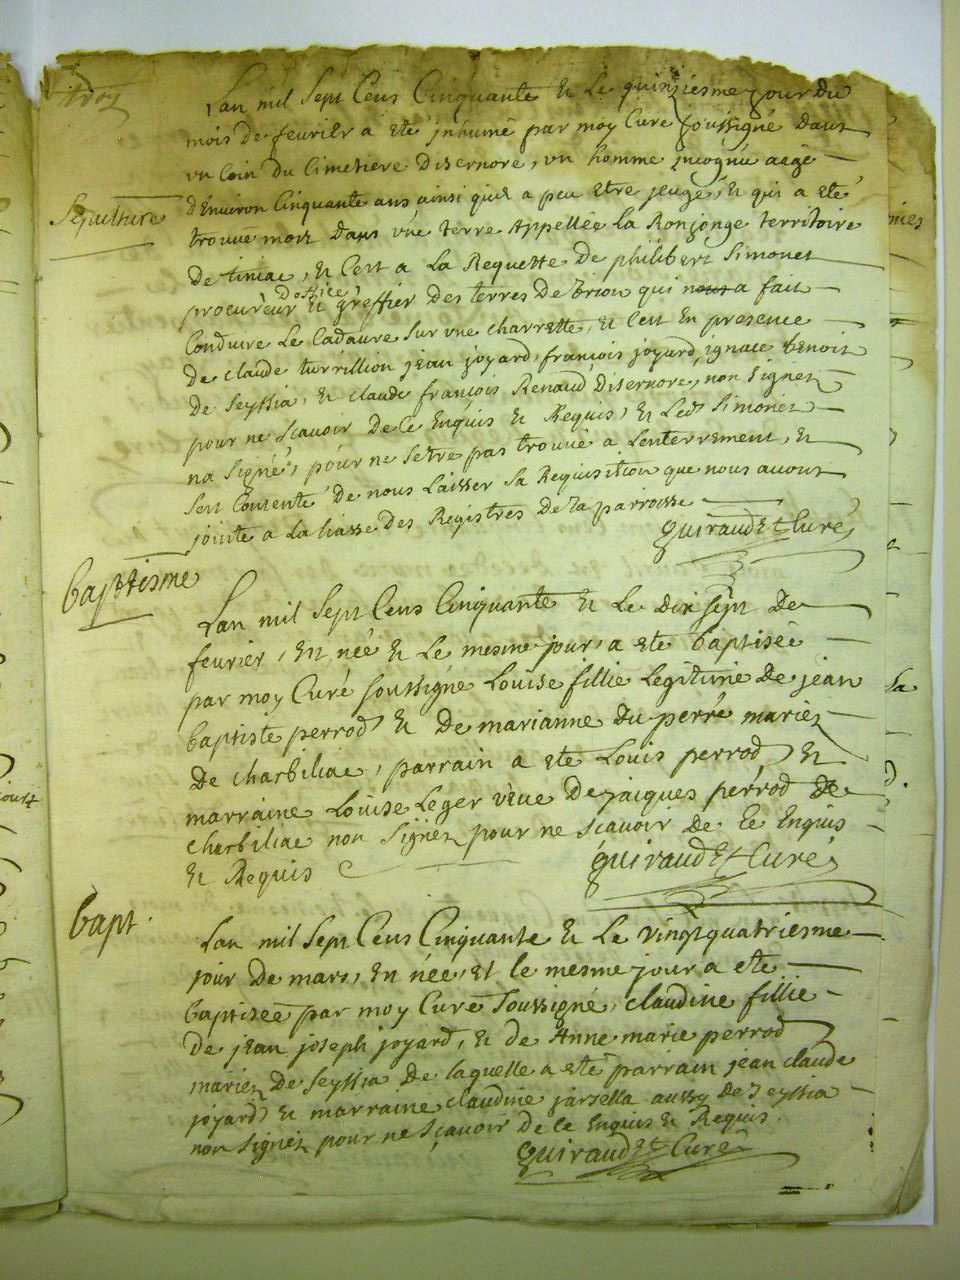 trois
Lan mil Sept Cens Cinquante & Le quinziesme jour du
mois de fevrier a eté jnhumé par moy Curé soussigné dans
un Coin du Cimetiere disernore, un homme jncognu aagé
Sepulture
d'Environ Cinquante ans ainsi quil a peu Etre jeugé, & qui a eté
trouvé mort dans vne terre Appellée La Ronjonge territoire
de tiniac, & Cest a La Requette de philibert Simonet
procureur d'office & greffier des terres de qui a fait
Conduire Le Cadavre sur vne charrette, & Cest En presence
de claude turrillion jean joyard, françois joyard, ignace benoit
de Seyssia, & claude françois Renaud disernore, non Signez
pour ne Scavoir de Ce Enquis & Requis, & Led. Simonet
na Signé, pour ne Setre pas trouvé a Lenterrement, &
sest Contenté de nous Laisser Sa Requisition que nous avons
jointe a La Liasse des Registres de La parroisse
Guiraudet Curé
baptisme
Lan mil Sept Cens Cinquante & Le dix sept de
fevrier, En née & Le mesme jour, a eté baptisée
par moy Curé soussigné Louise fillie Legitime de jean
baptiste perrod & de marianne du perré mariez
de charbiliac, parrain a eté Louis perrod, &
marraine Louise Leger veue de jaiques perrod de
charbiliac non Signez pour ne Scavoir de Ce Enquis
& Requis
Guiraudet Curé
bapt.
Lan mil Sept Cens Cinquante & Le vingtquatriesme
jour de mars, En née, et le mesme jour a eté
baptisée par moy Curé Soussigné, claudine fillie
de jean joseph joyard, & de Anne marie perrod
mariez de Seyssia de laquelle a eté parrain jean claude
joyard & marraine claudine jarsella aussy de Seyssia
non Signez pour ne Scavoir de Ce Enquis & Requis.
Guiraudet Curé